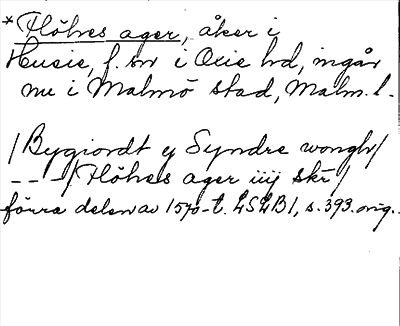 *Hölves ager, åker i
Husie, f. sn i Oxie hd, ingår
nu i Malmö stad, Malm. l.
/Bygiordt ej Syndre wongh/
– – –/Hölves ager iiij skr/
förra delen av 1570-t. LSLB1, s. 393. orig.